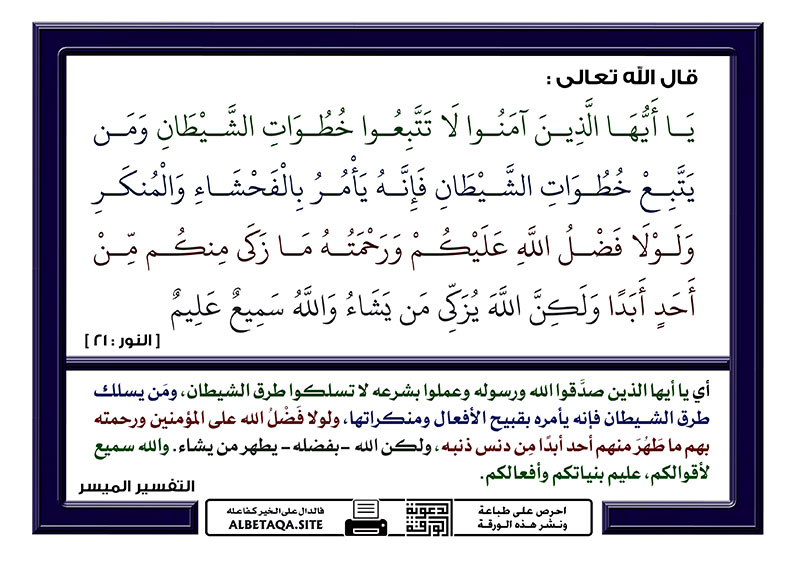 قال الله تعالى :
يَا أَيُّهَا الَّذِينَ آمَنُوا لَا تَتَّبِعُوا خُطُوَاتِ الشَّيْطَانِ وَمَن
يَتَّبِعْ خُطُوَاتِ الشَّيْطَانِ فَإِنَّهُ يَأْمُرُ بِالْفَحْشَاءِ وَالْمُنكَرِ
وَلَوْلَا فَضْلُ اللَّهِ عَلَيْكُمْ وَرَحْمَتُهُ مَا زَكَى مِنكُم مِّنْ
أَحَدٍ أَبَدًا وَلَكِنَّ اللَّهَ يُزَكِّي مَن يَشَاءُ وَاللَّهُ سَمِيعٌ عَلِيمٌ
[ النور : ٢١ ]
أي يا أيها الذين صدَّقوا الله ورسوله وعملوا بشرعه لا تسلكوا طرق الشيطان، ومَن يسلك
طرق الشيطان فإنه يأمره بقبيح الأفعال ومنكراتها، ولولا فَضْلُ الله على المؤمنين ورحمته
بهم ما طَهُرَ منهم أحد أبدًا مِن دنس ذنبه ، ولكن الله -بفضله- يطهر من يشاء. والله سميع
لأقوالكم، عليم بنياتكم وأفعالكم.
التفسير الميسر
احرص على طباعة
ونشر هذه الورقة
الورقة
الدعوية
فالدال على الخير كفاعله
ALBETAQA.SITE